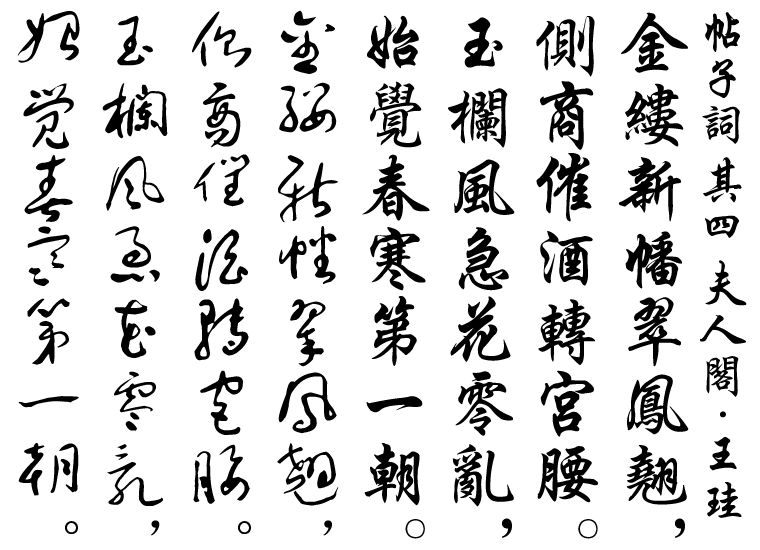 帖子詞 其四 夫人閣·王珪
金縷新幡翠鳳翹，
側商催酒轉宮腰。
玉欄風急花零亂，
始覺春寒第一朝。
金縷新幡翠鳳翹，
側商催酒轉宮腰。
玉欄風急花零亂，
始覺春寒第一朝。